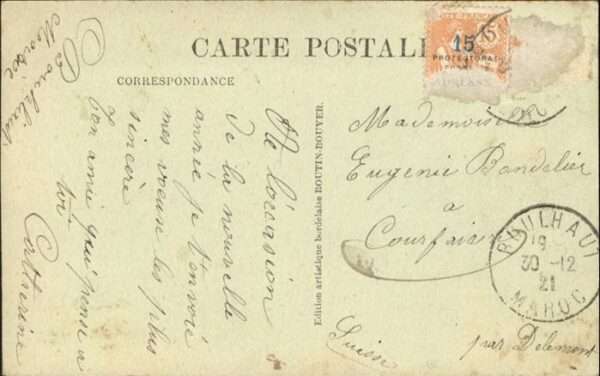 CARTE POSTALE
CORRESPONDANCE
Maroc
Boulhaut
A l'occasion
de la nouvelle
année je t'envoie
mes voeux les plus
sincère
Ton amie qui pense a
toi
Catherine
Edition artistique bordelaise BOUTIN-BOUYER.
15
15
PROTECTORAT
Mademoiselle
Eugenie Bandelier
a
Courfaivre
par Delemont
Suisse
BOULHAUT
19
30-12
21
MAROC